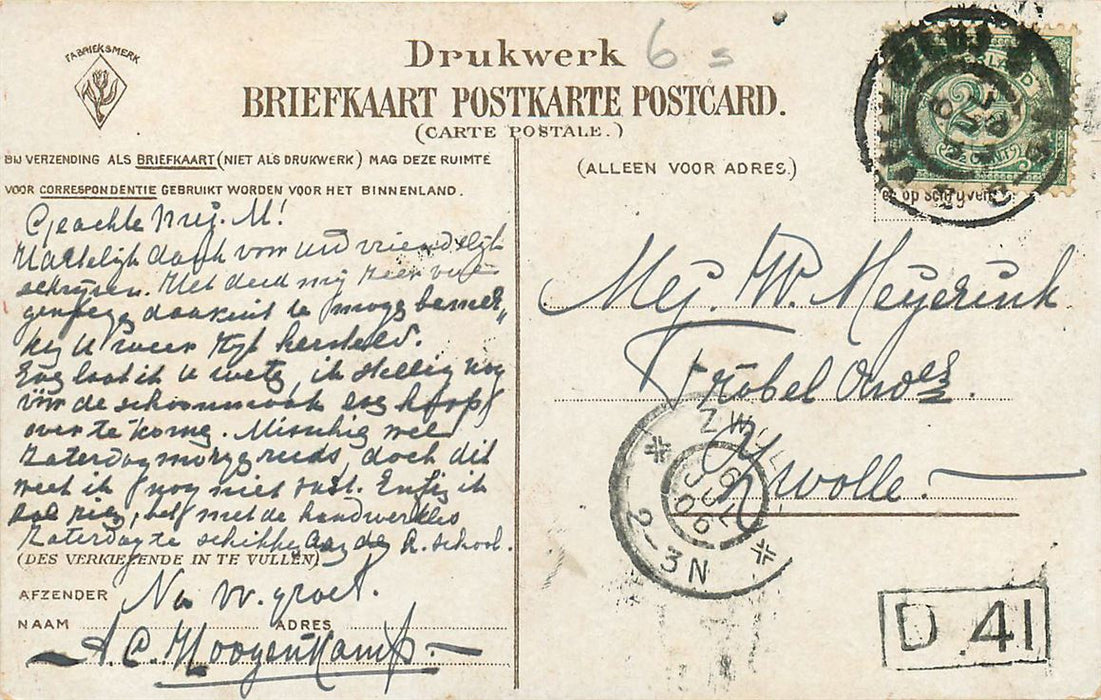 FABRIEKSMERK
Drukwerk 6 s
BRIEFKAART POSTKARTE POSTCARD.
(CARTE POSTALE.)
BIJ VERZENDING ALS BRIEFKAART (NIET ALS DRUKWERK) MAG DEZE RUIMTE
VOOR CORRESPONDENTIE GEBRUIKT WORDEN VOOR HET BINNENLAND.
(ALLEEN VOOR ADRES.)
op schrijven
Geachte Mej. M!
Hartelijk dank voor uw vriendelijk
schrijven. Het deed mij zeer veel
genoegen daaruit te mogen bemer„
ken U weer zijt hersteld.
laat ik u weten, ik stellig nog
vóór de schoonmaak eens hoop
over te komen. Misschien wel
Zaterdagmorgen reeds, doch dit
weet ik nog niet vast. Enfin ik
zal zien, het met de handwerkles
Zaterdag te schikken aan de h. school.
(DES VERKIEZENDE IN TE VULLEN)
AFZENDER Na vr. groet.
NAAM ADRES
A. C. Hoogenkamp
Mej. W. Meyerink
Fröbel Ondes.
Zwolle.
ZWOLL
6 JUL 06
2-3N
D 41